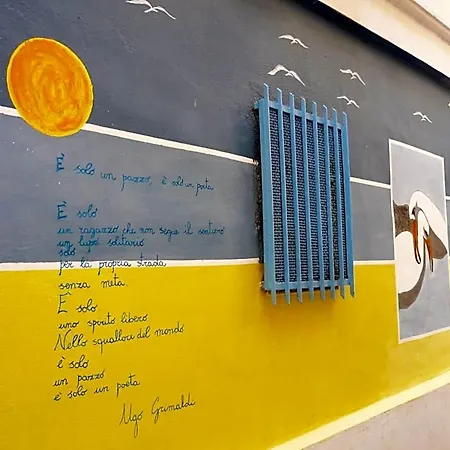 È solo un pazzo, è solo un poeta
È solo
un ragazzo che non segue il sentiero
un lupo solitario
solo
per la propria strada
senza meta.
È solo
uno spirito libero
Nello squallore del mondo
è solo
un pazzo
è solo un poeta
Ugo Grimaldi